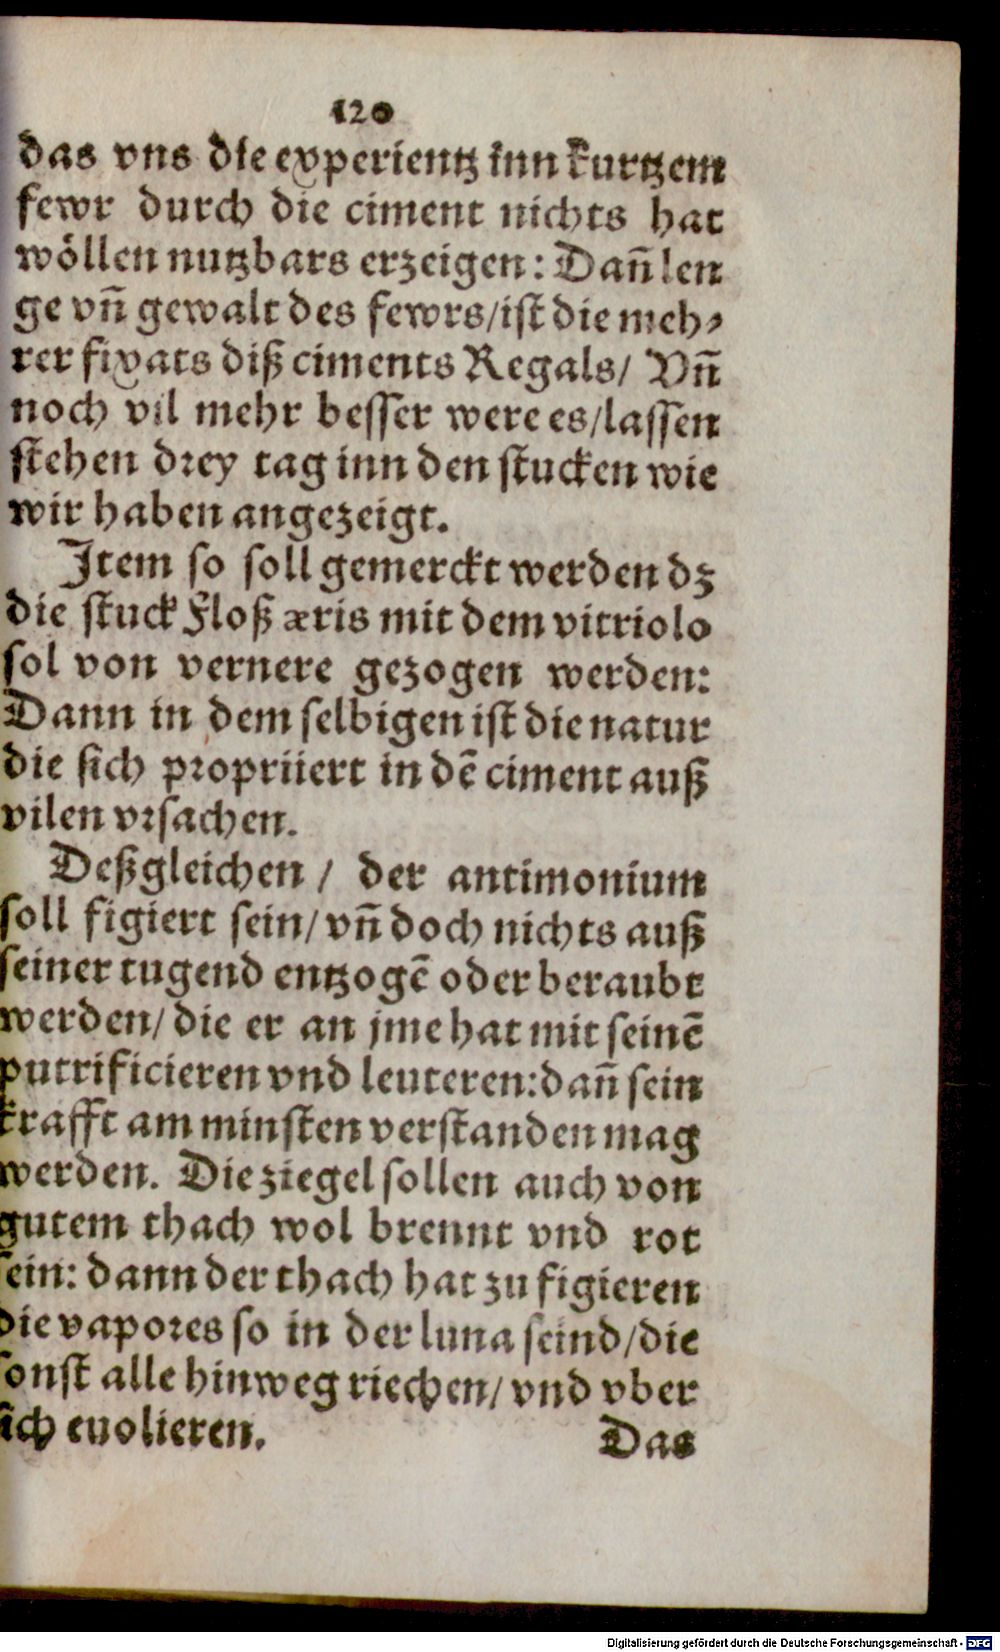 120
das vns die experientz inn kurtzem
fewr durch die ciment nichts hat
wöllen nutzbars erzeigen: Dañ len
ge vñ gewalt des fewrs/ist die meh⸗
rer fixats diß ciments Regals/ Vñ
noch vil mehr besser were es/lassen
stehen drey tag inn den stucken wie
wir haben angezeigt.
Item so soll gemerckt werden dz
die stuck Floß æris mit dem vitriolo
sol von vernere gezogen werden:
Dann in dem selbigen ist die natur
die sich propriiert in dē ciment auß
vilen vrsachen.
Deßgleichen / der antimonium
soll figiert sein/ vñ doch nichts auß
seiner tugend entzogē oder beraubt
werden/ die er an jme hat mit seinē
putrificieren vnd leuteren: dañ sein
krafft am minsten verstanden mag
werden. Die ziegel sollen auch von
gutem thach wol brennt vnd rot
sein: dann der thach hat zu figieren
die vapores so in der luna seind/die
sonst alle hinweg riechen/ vnd vber
sich euolieren.
Das
Digitalisierung gefördert durch die Deutsche Forschungsgemeinschaft - DFG